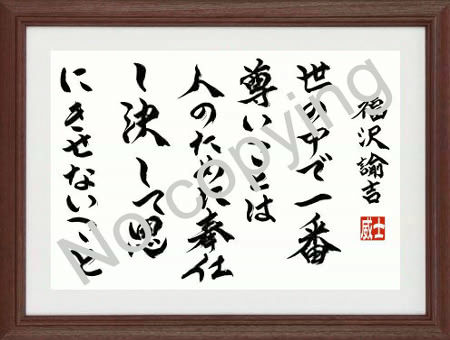 福沢諭吉
世の中で一番
尊いことは
人のために奉仕
し決して恩
にきせないこと
威士
No copying